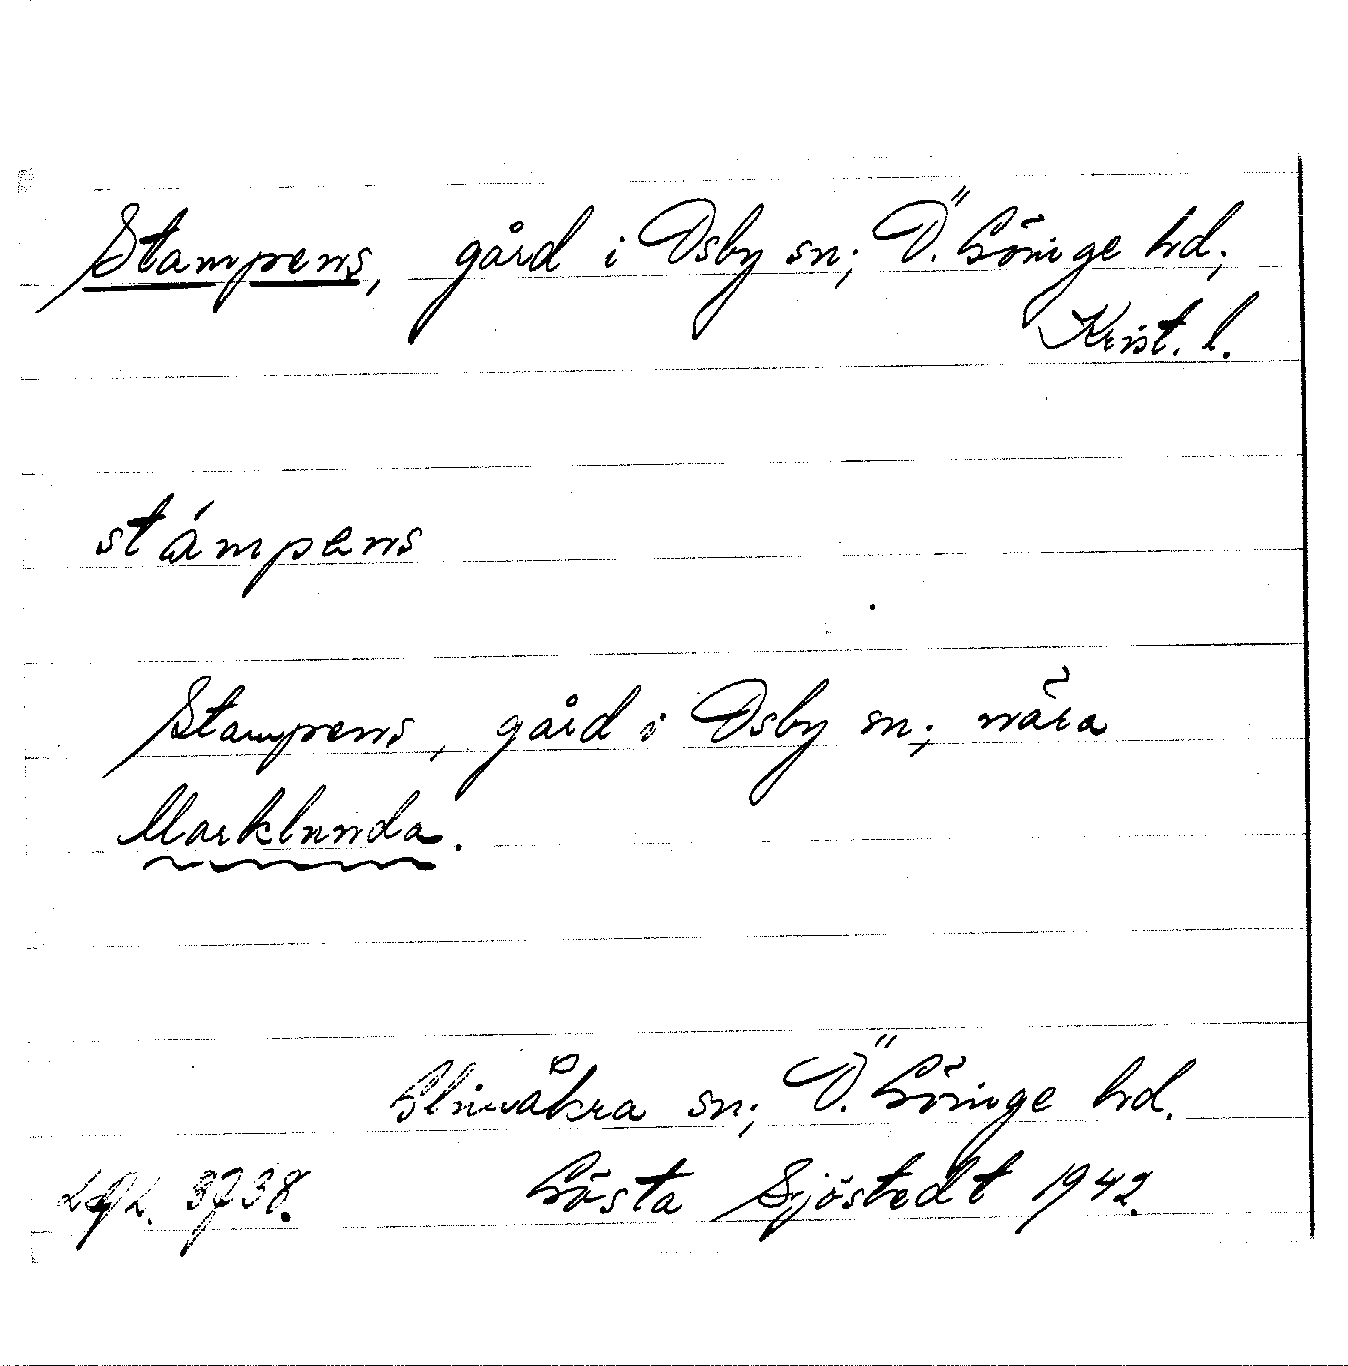 Stampens, gård i Osby sn; Ö. Göinge hd;
Krist. l.
stámpens
Stampens, gård i Osby sn; nära
Marklunda.
Glimåkra sn; Ö. Göinge hd.
3738. Gösta Sjöstedt 1942.